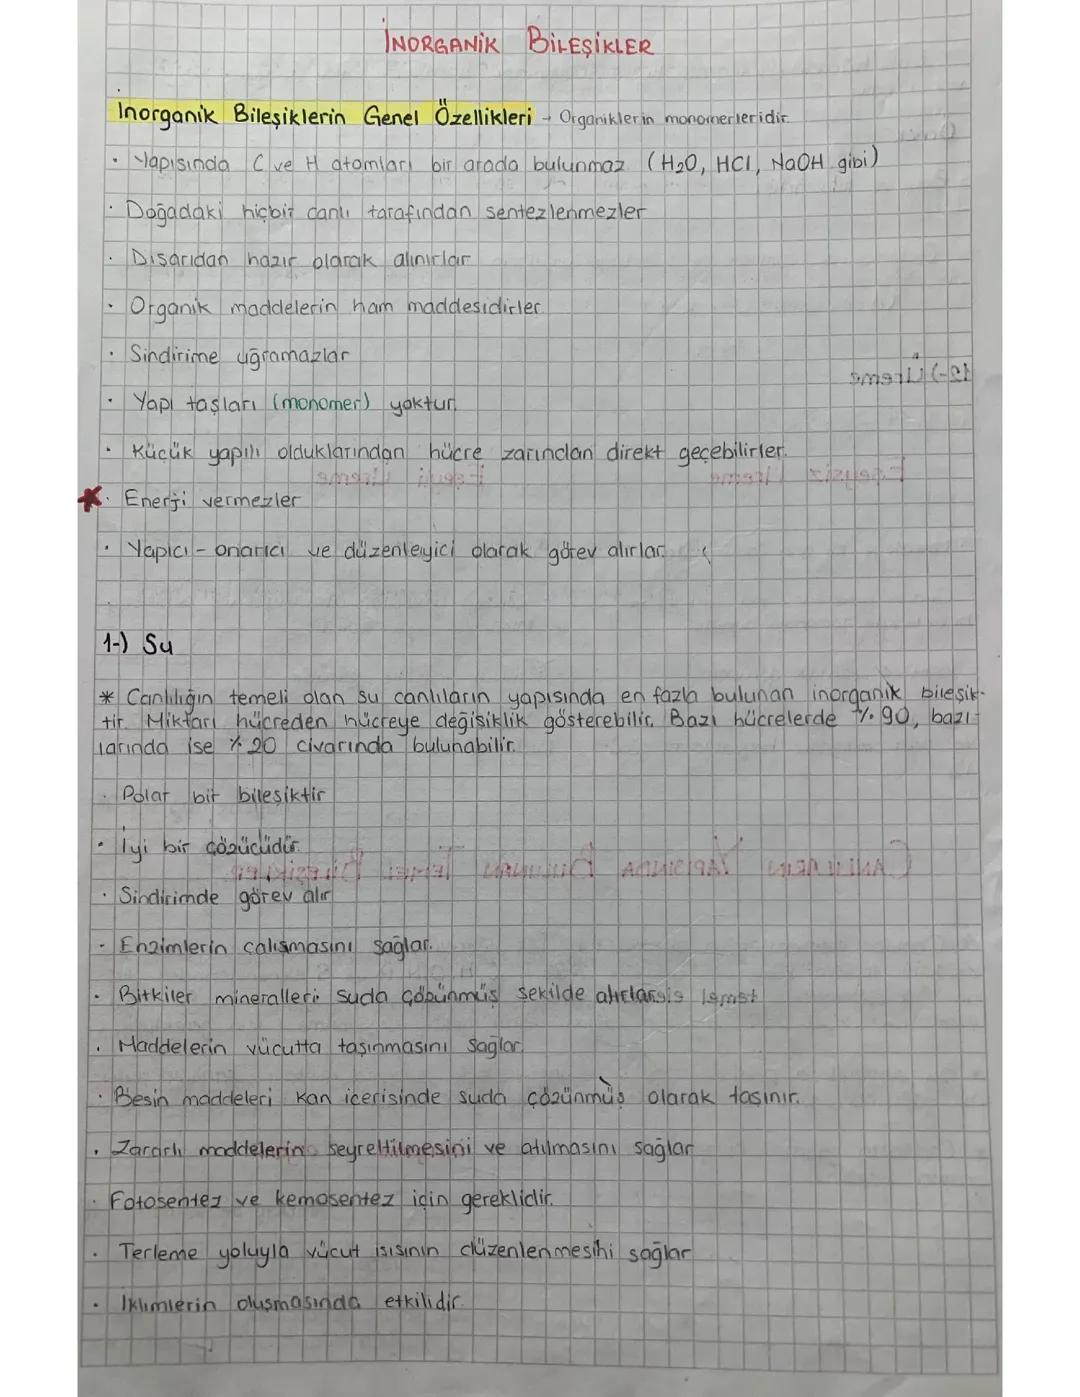 İNORGANİK BİLEŞİKLER
İnorganik Bileşiklerin Genel Özellikleri → Organiklerin monomerleridir.
• Yapısında C ve H atomları bir arada bulunmaz (H₂O, HCl, NaOH gibi)
• Doğadaki hiçbir canlı tarafından sentezlenmezler
• Dışarıdan hazır olarak alınırlar
• Organik maddelerin ham maddesidirler.
• Sindirime uğramazlar
• Yapı taşları (monomer) yoktur.
• Küçük yapılı olduklarından hücre zarından direkt geçebilirler.
* • Enerji vermezler
• Yapıcı - onarıcı ve düzenleyici olarak görev alırlar.
1-) Su
* Canlılığın temeli olan su canlıların yapısında en fazla bulunan inorganik bileşik-
tir. Miktarı hücreden hücreye değişiklik gösterebilir. Bazı hücrelerde %90, bazı-
larında ise %20 civarında bulunabilir.
• Polar bir bileşiktir
• İyi bir çözücüdür.
• Sindirimde görev alır
• Enzimlerin çalışmasını sağlar.
• Bitkiler mineralleri suda çözünmüş şekilde alırlar
• Maddelerin vücutta taşınmasını sağlar.
• Besin maddeleri kan içerisinde suda çözünmüş olarak taşınır.
• Zararlı maddelerin seyreltilmesini ve atılmasını sağlar
• Fotosentez ve kemosentez için gereklidir.
• Terleme yoluyla vücut ısısının düzenlenmesini sağlar
• İklimlerin oluşmasında etkilidir.